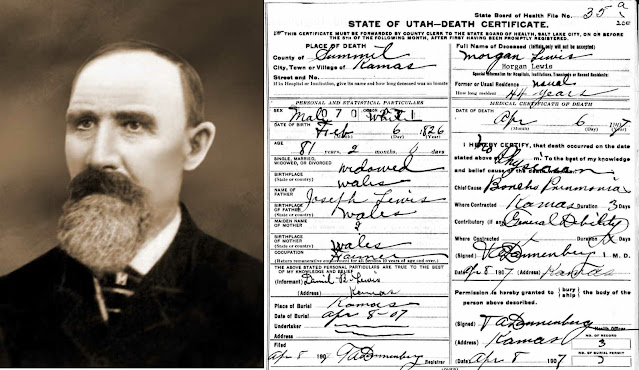 State Board of Health File No. 35 a
STATE OF UTAH—DEATH CERTIFICATE.
THIS CERTIFICATE MUST BE FORWARDED BY COUNTY CLERK TO THE STATE BOARD OF HEALTH, SALT LAKE CITY, ON OR BEFORE
THE 5TH OF THE FOLLOWING MONTH, AFTER FIRST HAVING BEEN PROMPTLY REGISTERED.
PLACE OF DEATH
County of Summit
City, Town or Village of Kamas
Street and No.
If in Hospital or Institution, give its name and how long deceased was an inmate
Full Name of Deceased (Initials only will not be accepted)
Morgan Lewis
Morgan Lewis
Special Information for Hospitals, Institutions, Transients or Recent Residents:
Former or Usual Residence usual
How long resident 44 years
PERSONAL AND STATISTICAL PARTICULARS
SEX Male
White
DATE OF BIRTH Feb 6 1826
AGE 81 years, 2 months 6 days
SINGLE, MARRIED, WIDOWED, OR DIVORCED widowed
BIRTHPLACE (State or country) wales
NAME OF FATHER Joseph Lewis
BIRTHPLACE OF FATHER (State or country) wales
MAIDEN NAME OF MOTHER ?
BIRTHPLACE OF MOTHER (State or country) wales
OCCUPATION Farmer
THE ABOVE STATED PERSONAL PARTICULARS ARE TRUE TO THE BEST
OF MY KNOWLEDGE AND BELIEF
(Informant) Lewis
(Address) Kamas
Place of Burial Kamas
Date of Burial apr 8-07
Undertaker
Address
Filed apr 8 190 T A Dannenberg Registrar
MEDICAL CERTIFICATE OF DEATH
DATE OF DEATH
apr 6 1907
(Month) (Day) (Year)
I HEREBY CERTIFY, that death occurred on the date
stated above m. To the best of my knowledge
and belief cause of the death
Physician
Chief Cause
Where Contracted Kamas Duration 3 Days
Contributory (if any) General Debility
Where Contracted Duration Days
(Signed) Dannenberg M. D.
Date apr 8 1907 (Address) Kamas
Permission is hereby granted to {bury ship} the body of the
person above described.
(Signed) T A Dannenberg Health Officer
(Address) Kamas
NO. OF RECORD 3
(Date) Apr 8 1907
NO. OF BURIAL PERMIT 3